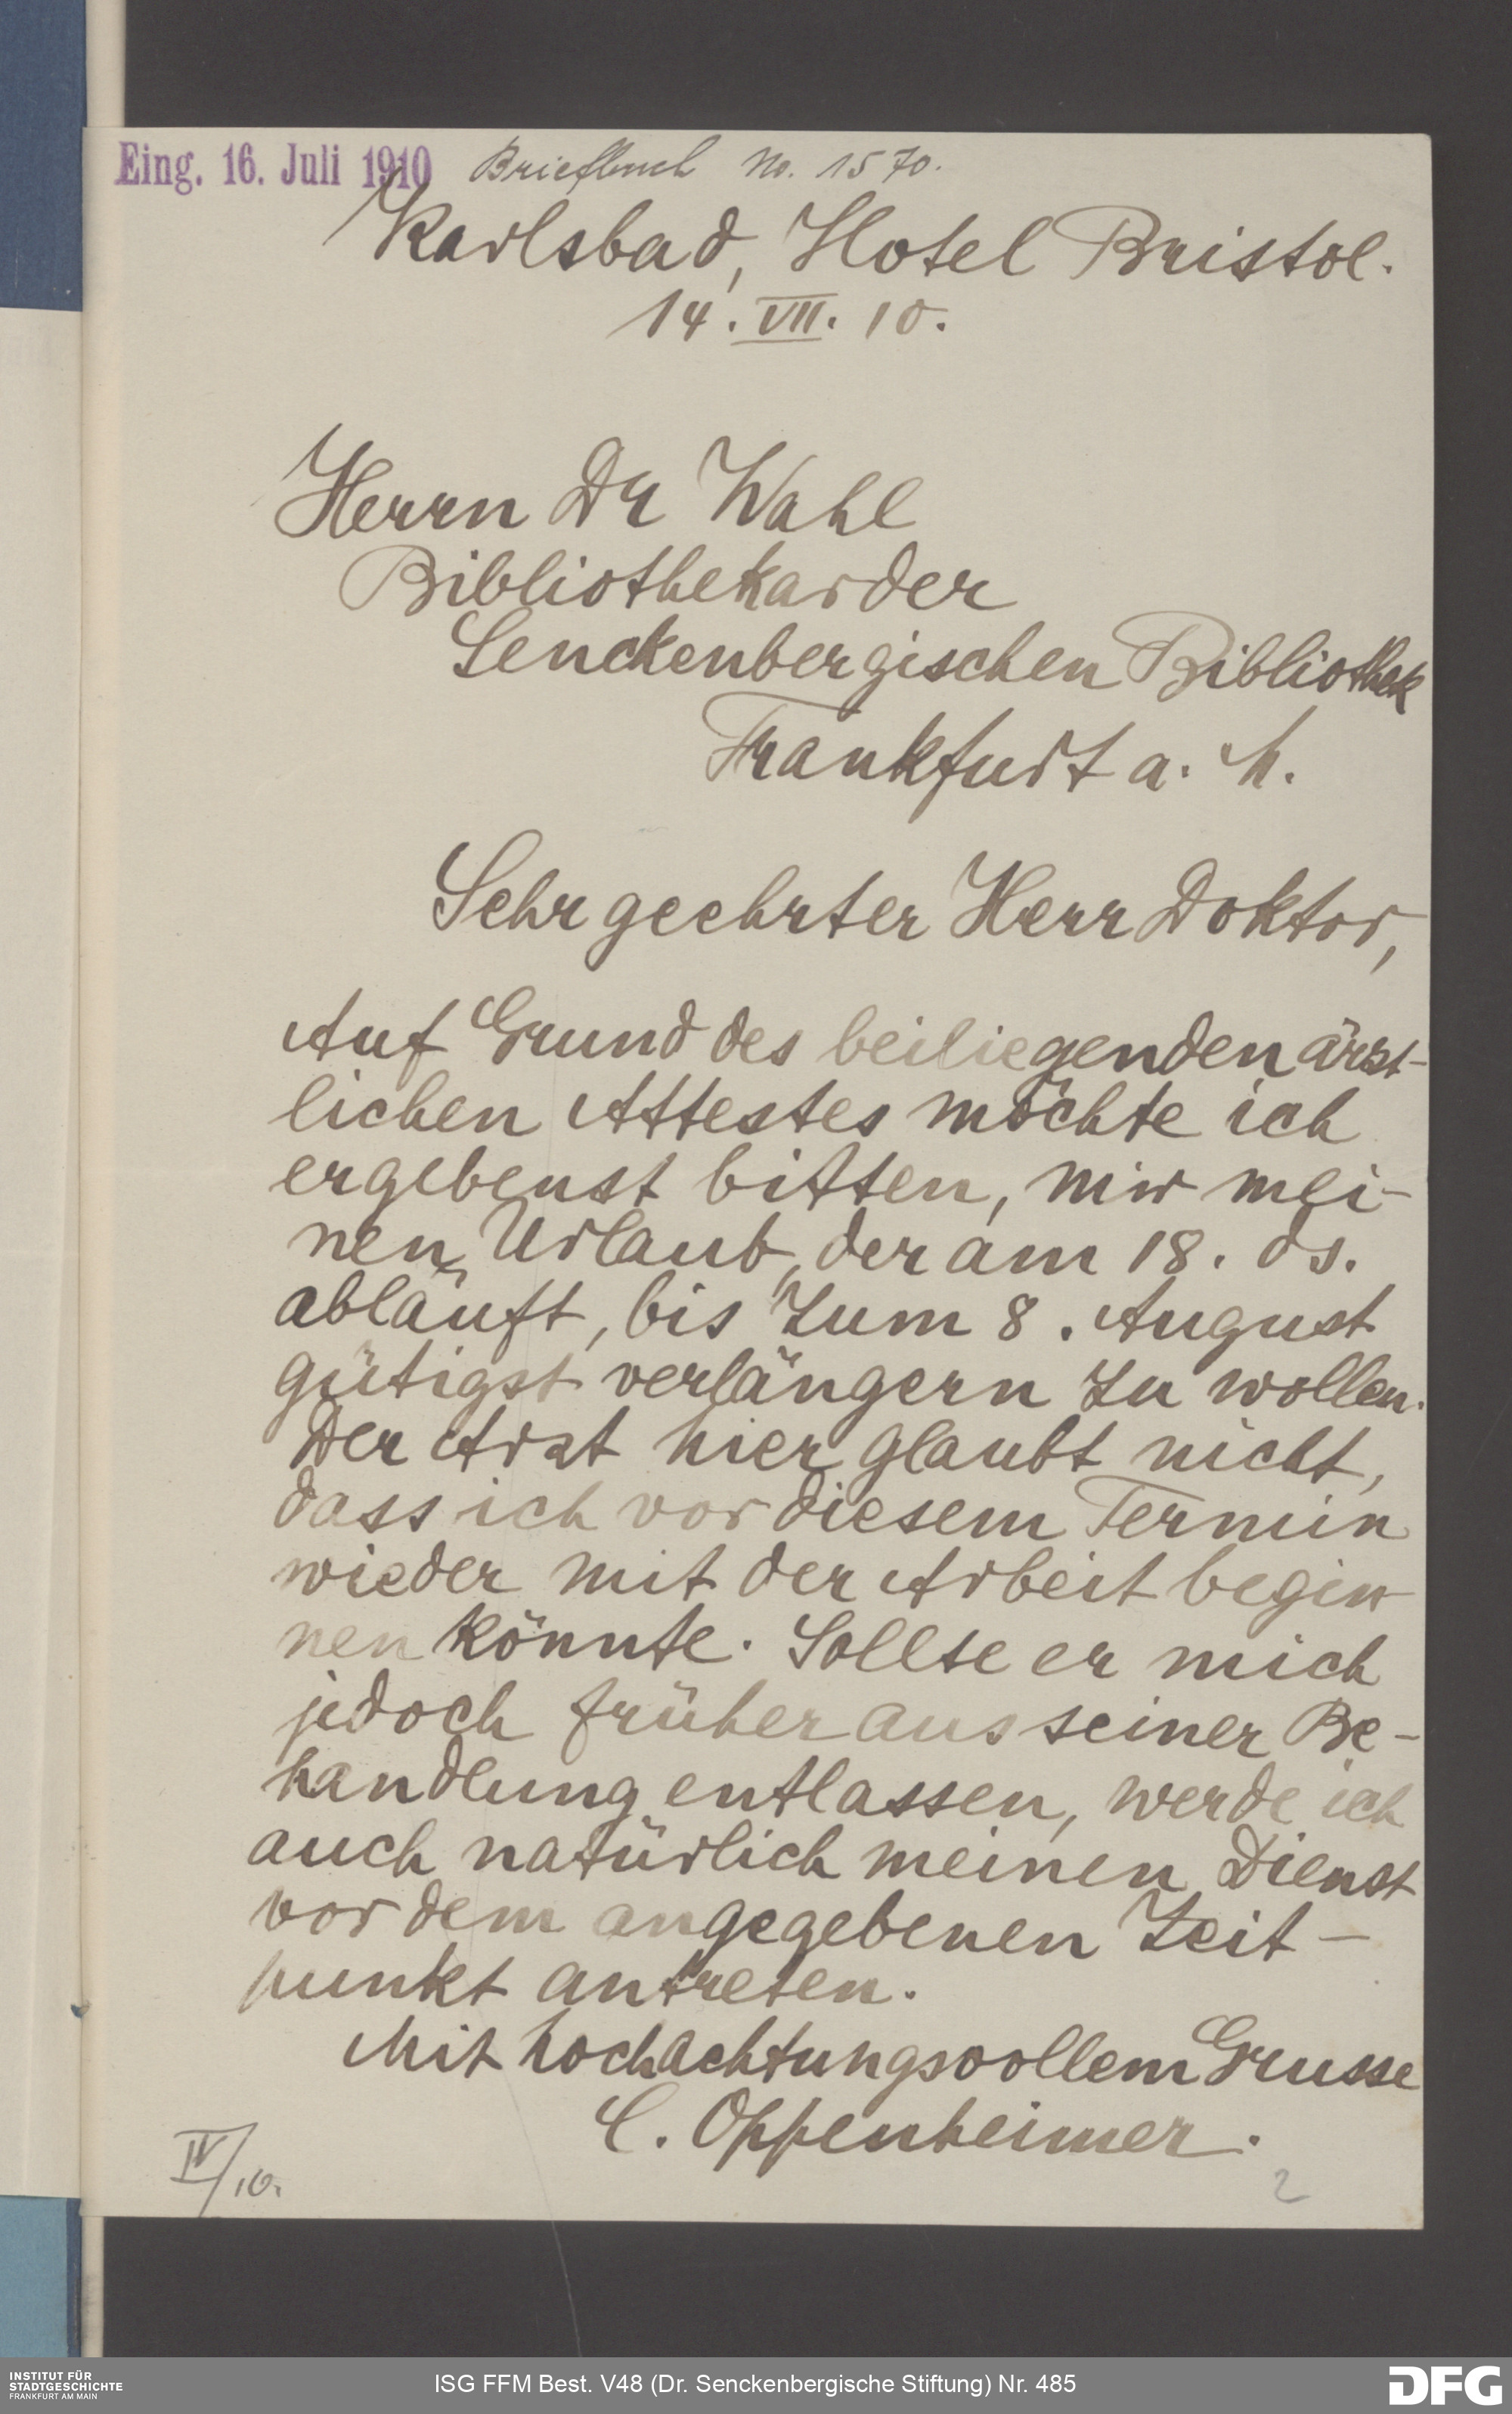 Eing. 16. Juli 1910 Briefbuch No. 1570.
Karlsbad, Hotel Bristol.
14. VII. 10.
Herrn Dr Wahl
Bibliothekar der
Senckenbergischen Bibliothek
Frankfurt a. M.
Sehr geehrter Herr Doktor,
Auf Grund des beiliegenden ärzt-
lichen Attestes möchte ich
ergebenst bitten, mir mei-
nen Urlaub, der am 18. ds.
abläuft, bis zum 8. August
gütigst verlängern zu wollen.
Der Arzt hier glaubt nicht,
dass ich vor diesem Termin
wieder mit der Arbeit begin-
nen könnte. Sollte er mich
jedoch früher aus seiner Be-
handlung entlassen, werde ich
auch natürlich meinen Dienst
vor dem angegebenen Zeit-
punkt antreten.
Mit hochachtungsvollem Grusse
C. Oppenheimer.
IV/10.
2
INSTITUT FÜR
STADTGESCHICHTE
FRANKFURT AM MAIN
ISG FFM Best. V48 (Dr. Senckenbergische Stiftung) Nr. 485
DFG